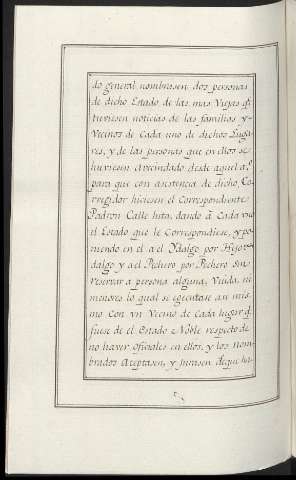 do general nombrasen dos personas
de dicho Estado de las mas Viejas q̃
tuviesen noticias de las familias y
Vecinos de Cada uno de dichos Luga-
res, y de las personas que en ellos se
huviesen avecindado desde aquel a.º
para que con asistencia de dicho Co-
rregidor hiciesen el Correspondiente
Padron Calle hita, dando à Cada vno
el Estado que le Correspondiese, y po-
niendo en el a el Ydalgo por Hijo
dalgo y a el Pechero por Pechero sin
reservar a persona alguna, Viuda, ni
menores lo qual se egecutase asi mis-
mo Con vn Vecino de Cada lugar q̃
fuese de el Estado Noble respecto de
no haver Oficiales en ellos, y los nom-
brados Aceptasen, y Jurasen de que ha-